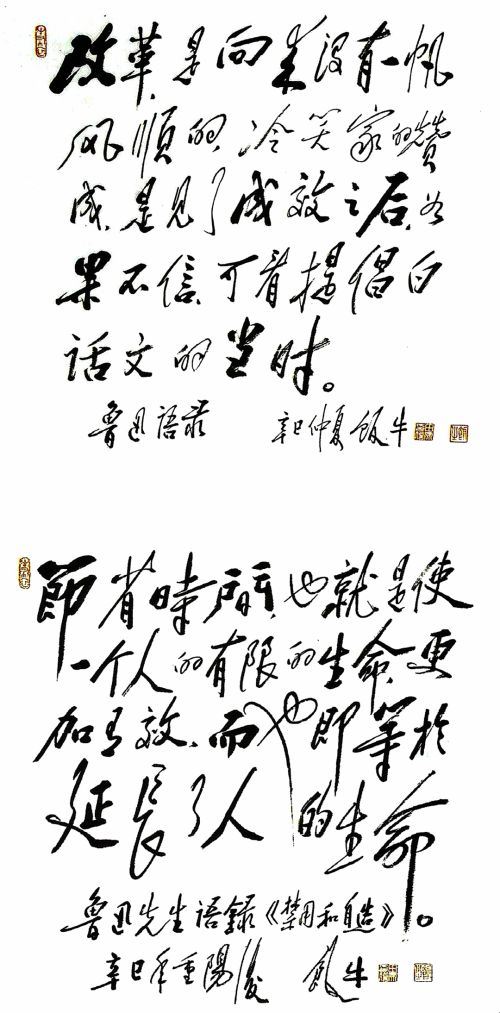 改革,是向来没有一帆
风順的,冷笑家的赞
成,是见了成效之后,如
果不信,可看提倡白
话文的当时。
鲁迅語 辛巳仲夏 饭牛
節省時間,也就是使
一个人的有限的生命,更
加有效,而也即等於
延長了人的生命。
鲁迅先生語錄《禁用和自造》
辛巳年重陽後 饭牛